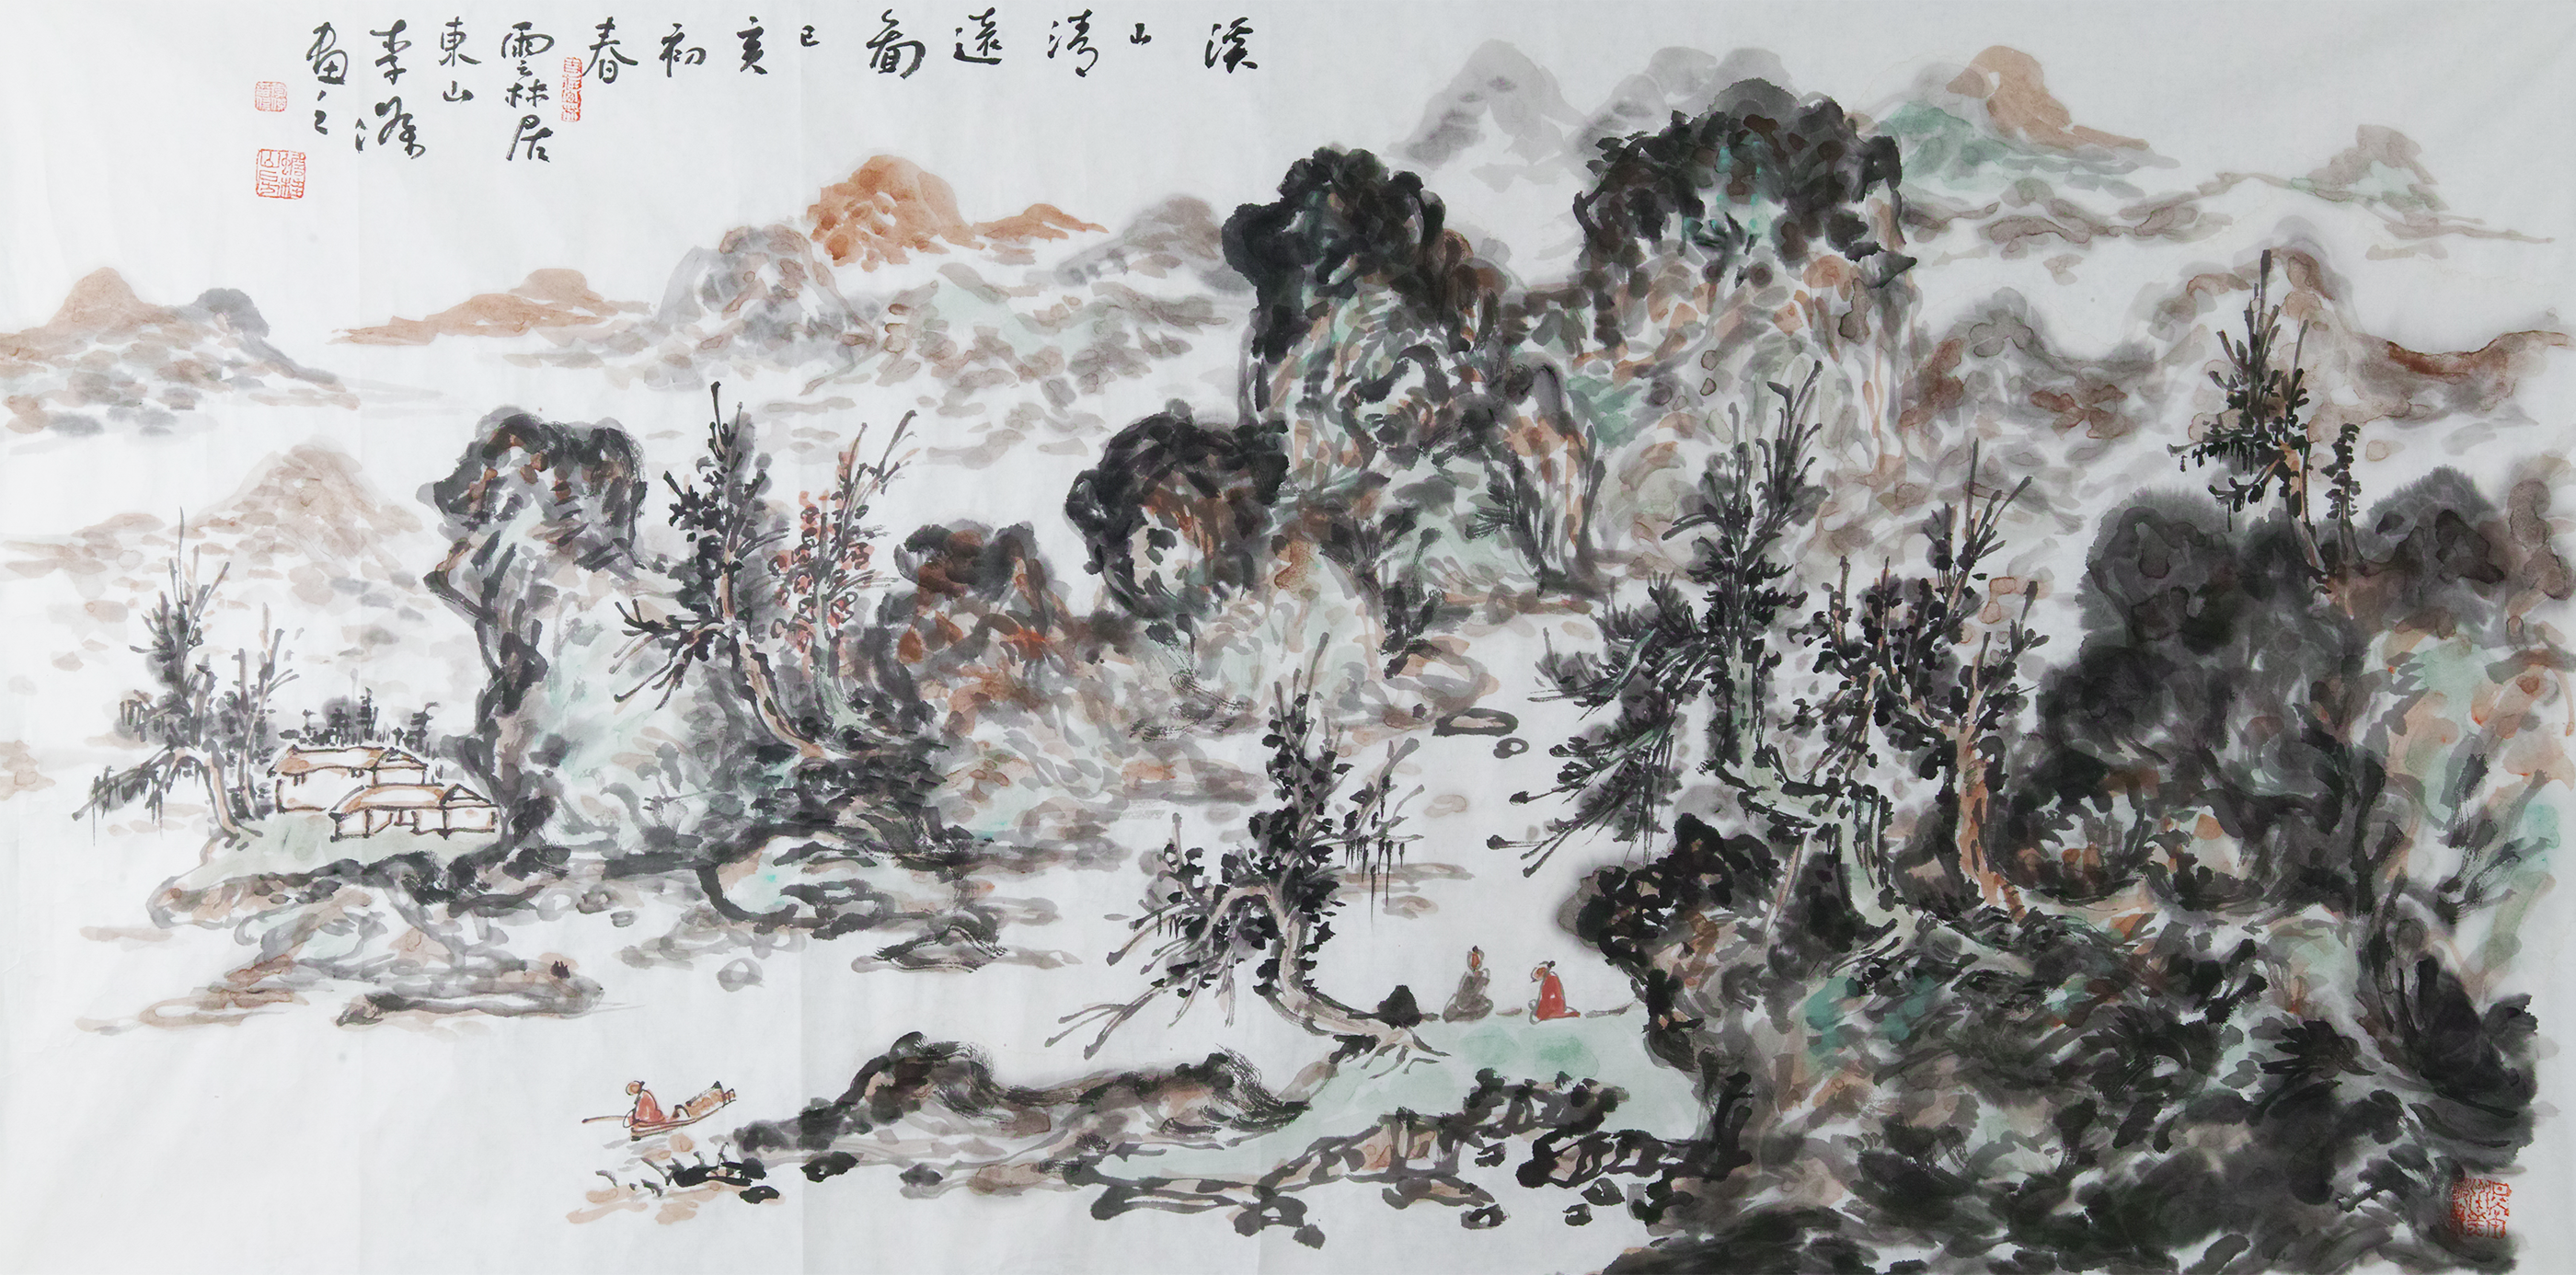 溪山清遠啚己亥初春
雲林居
東山
李滌
畫之